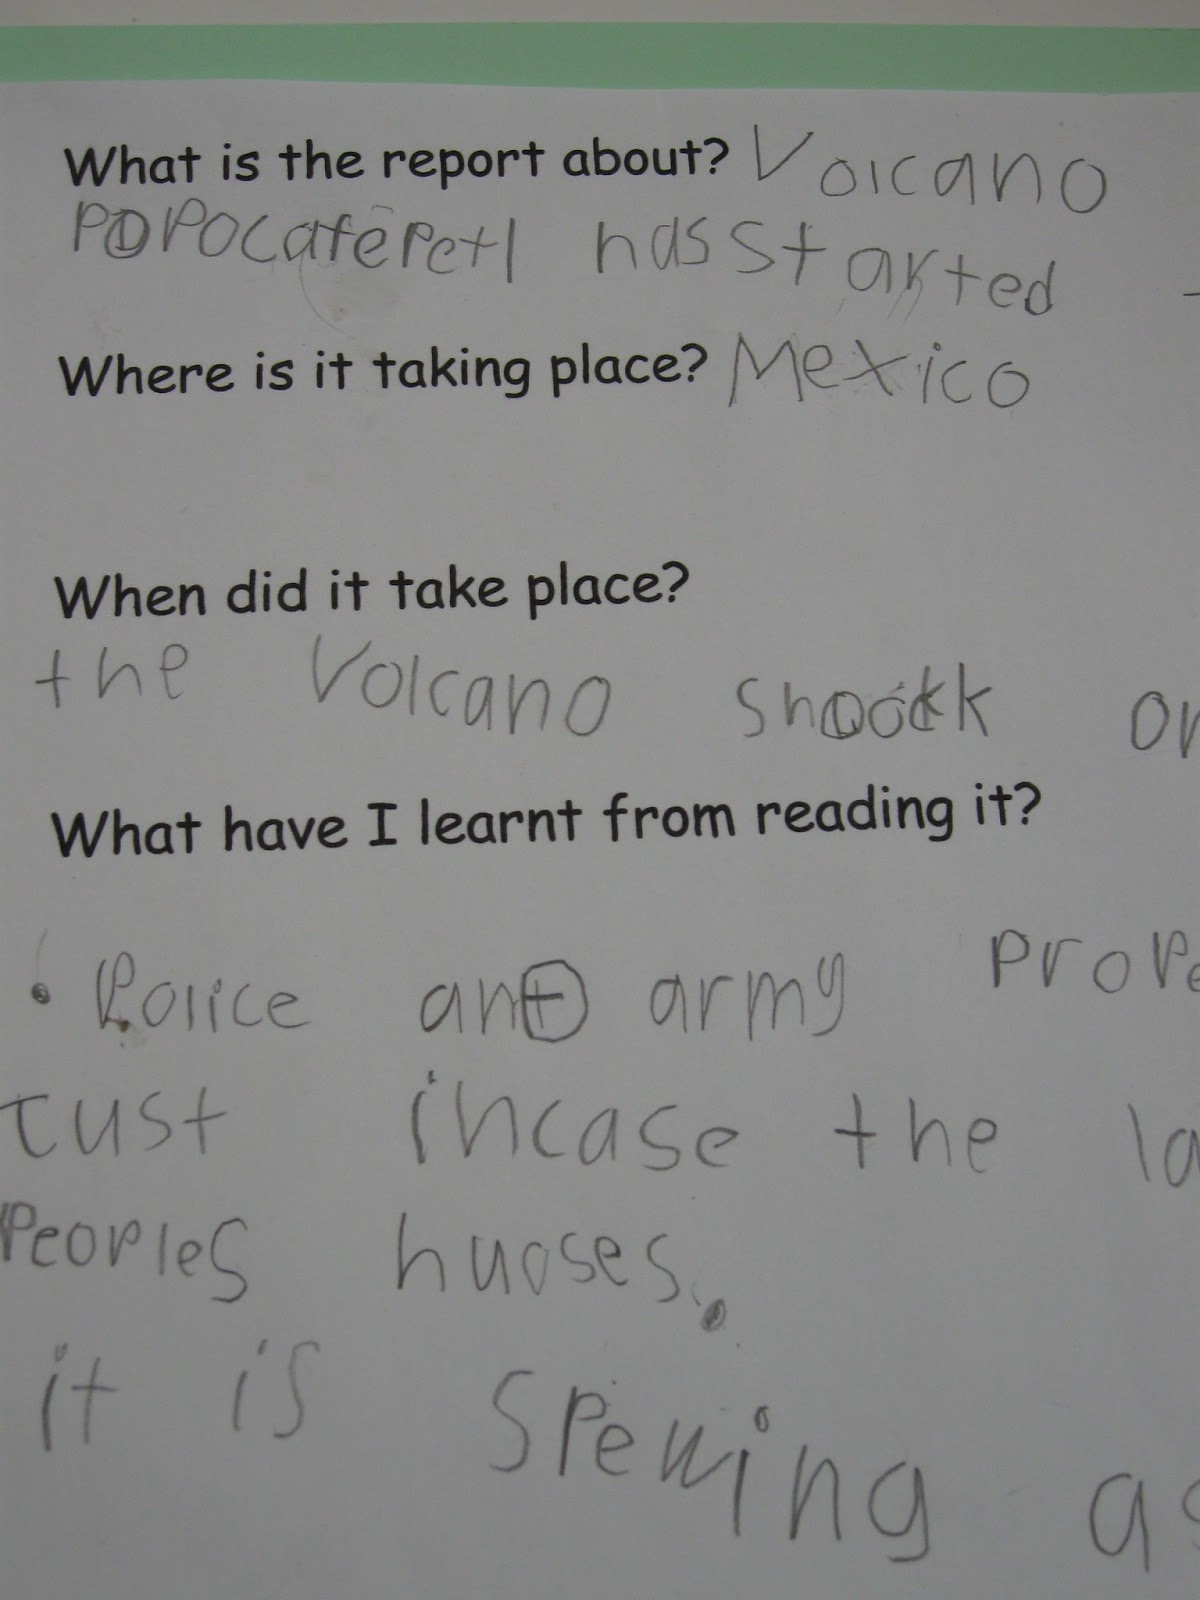 What is the report about? Volcano
Popocatepetl has started
Where is it taking place? Mexico
When did it take place?
the Volcano shoock on
What have I learnt from reading it?
• Police ant army prope
Just incase the la
Peoples huoses.
it is spewing as